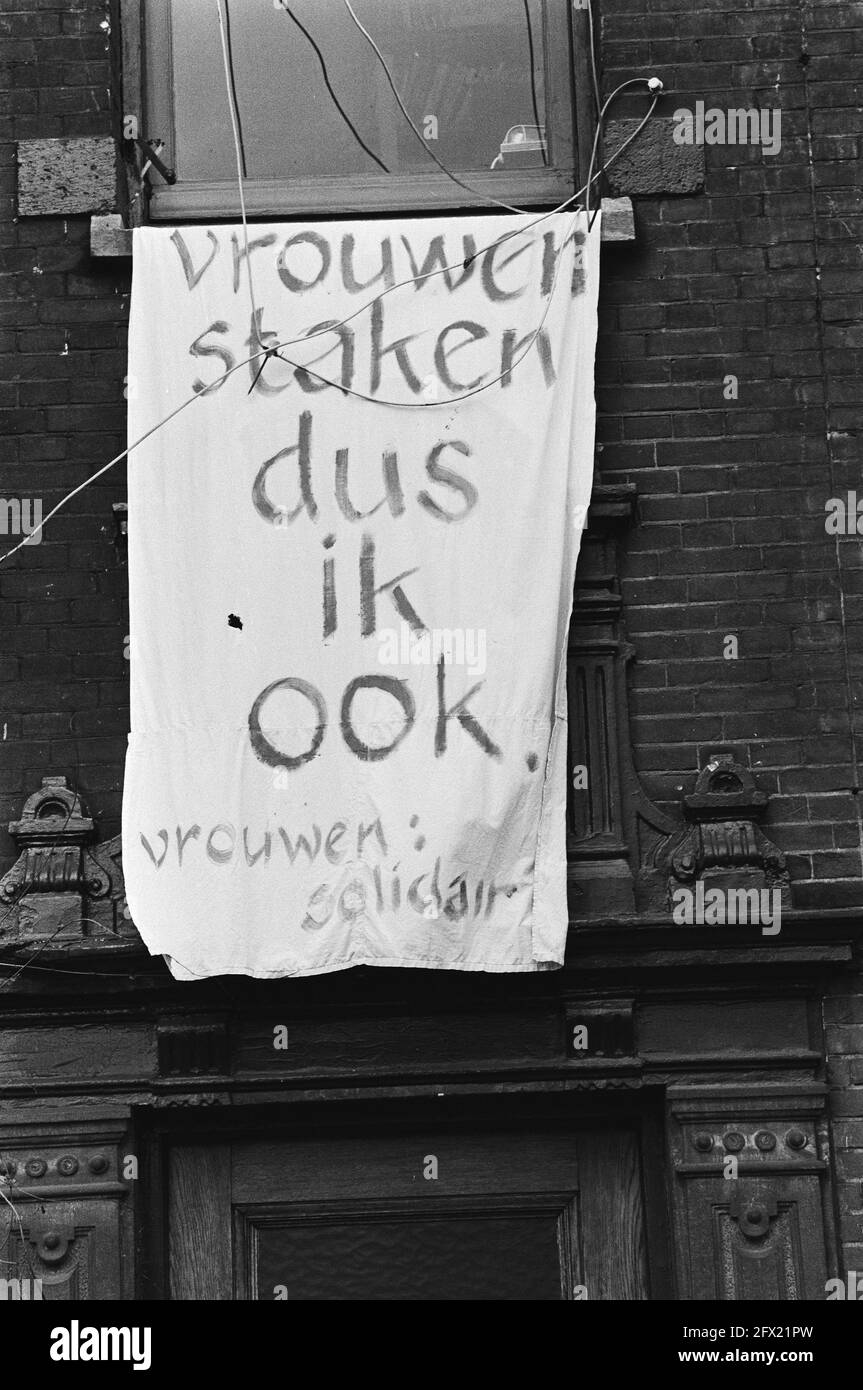 vrouwen
staken
dus
ik
ook.
vrouwen:
solidair
alamy
Image ID: 2FX21PW
www.alamy.com